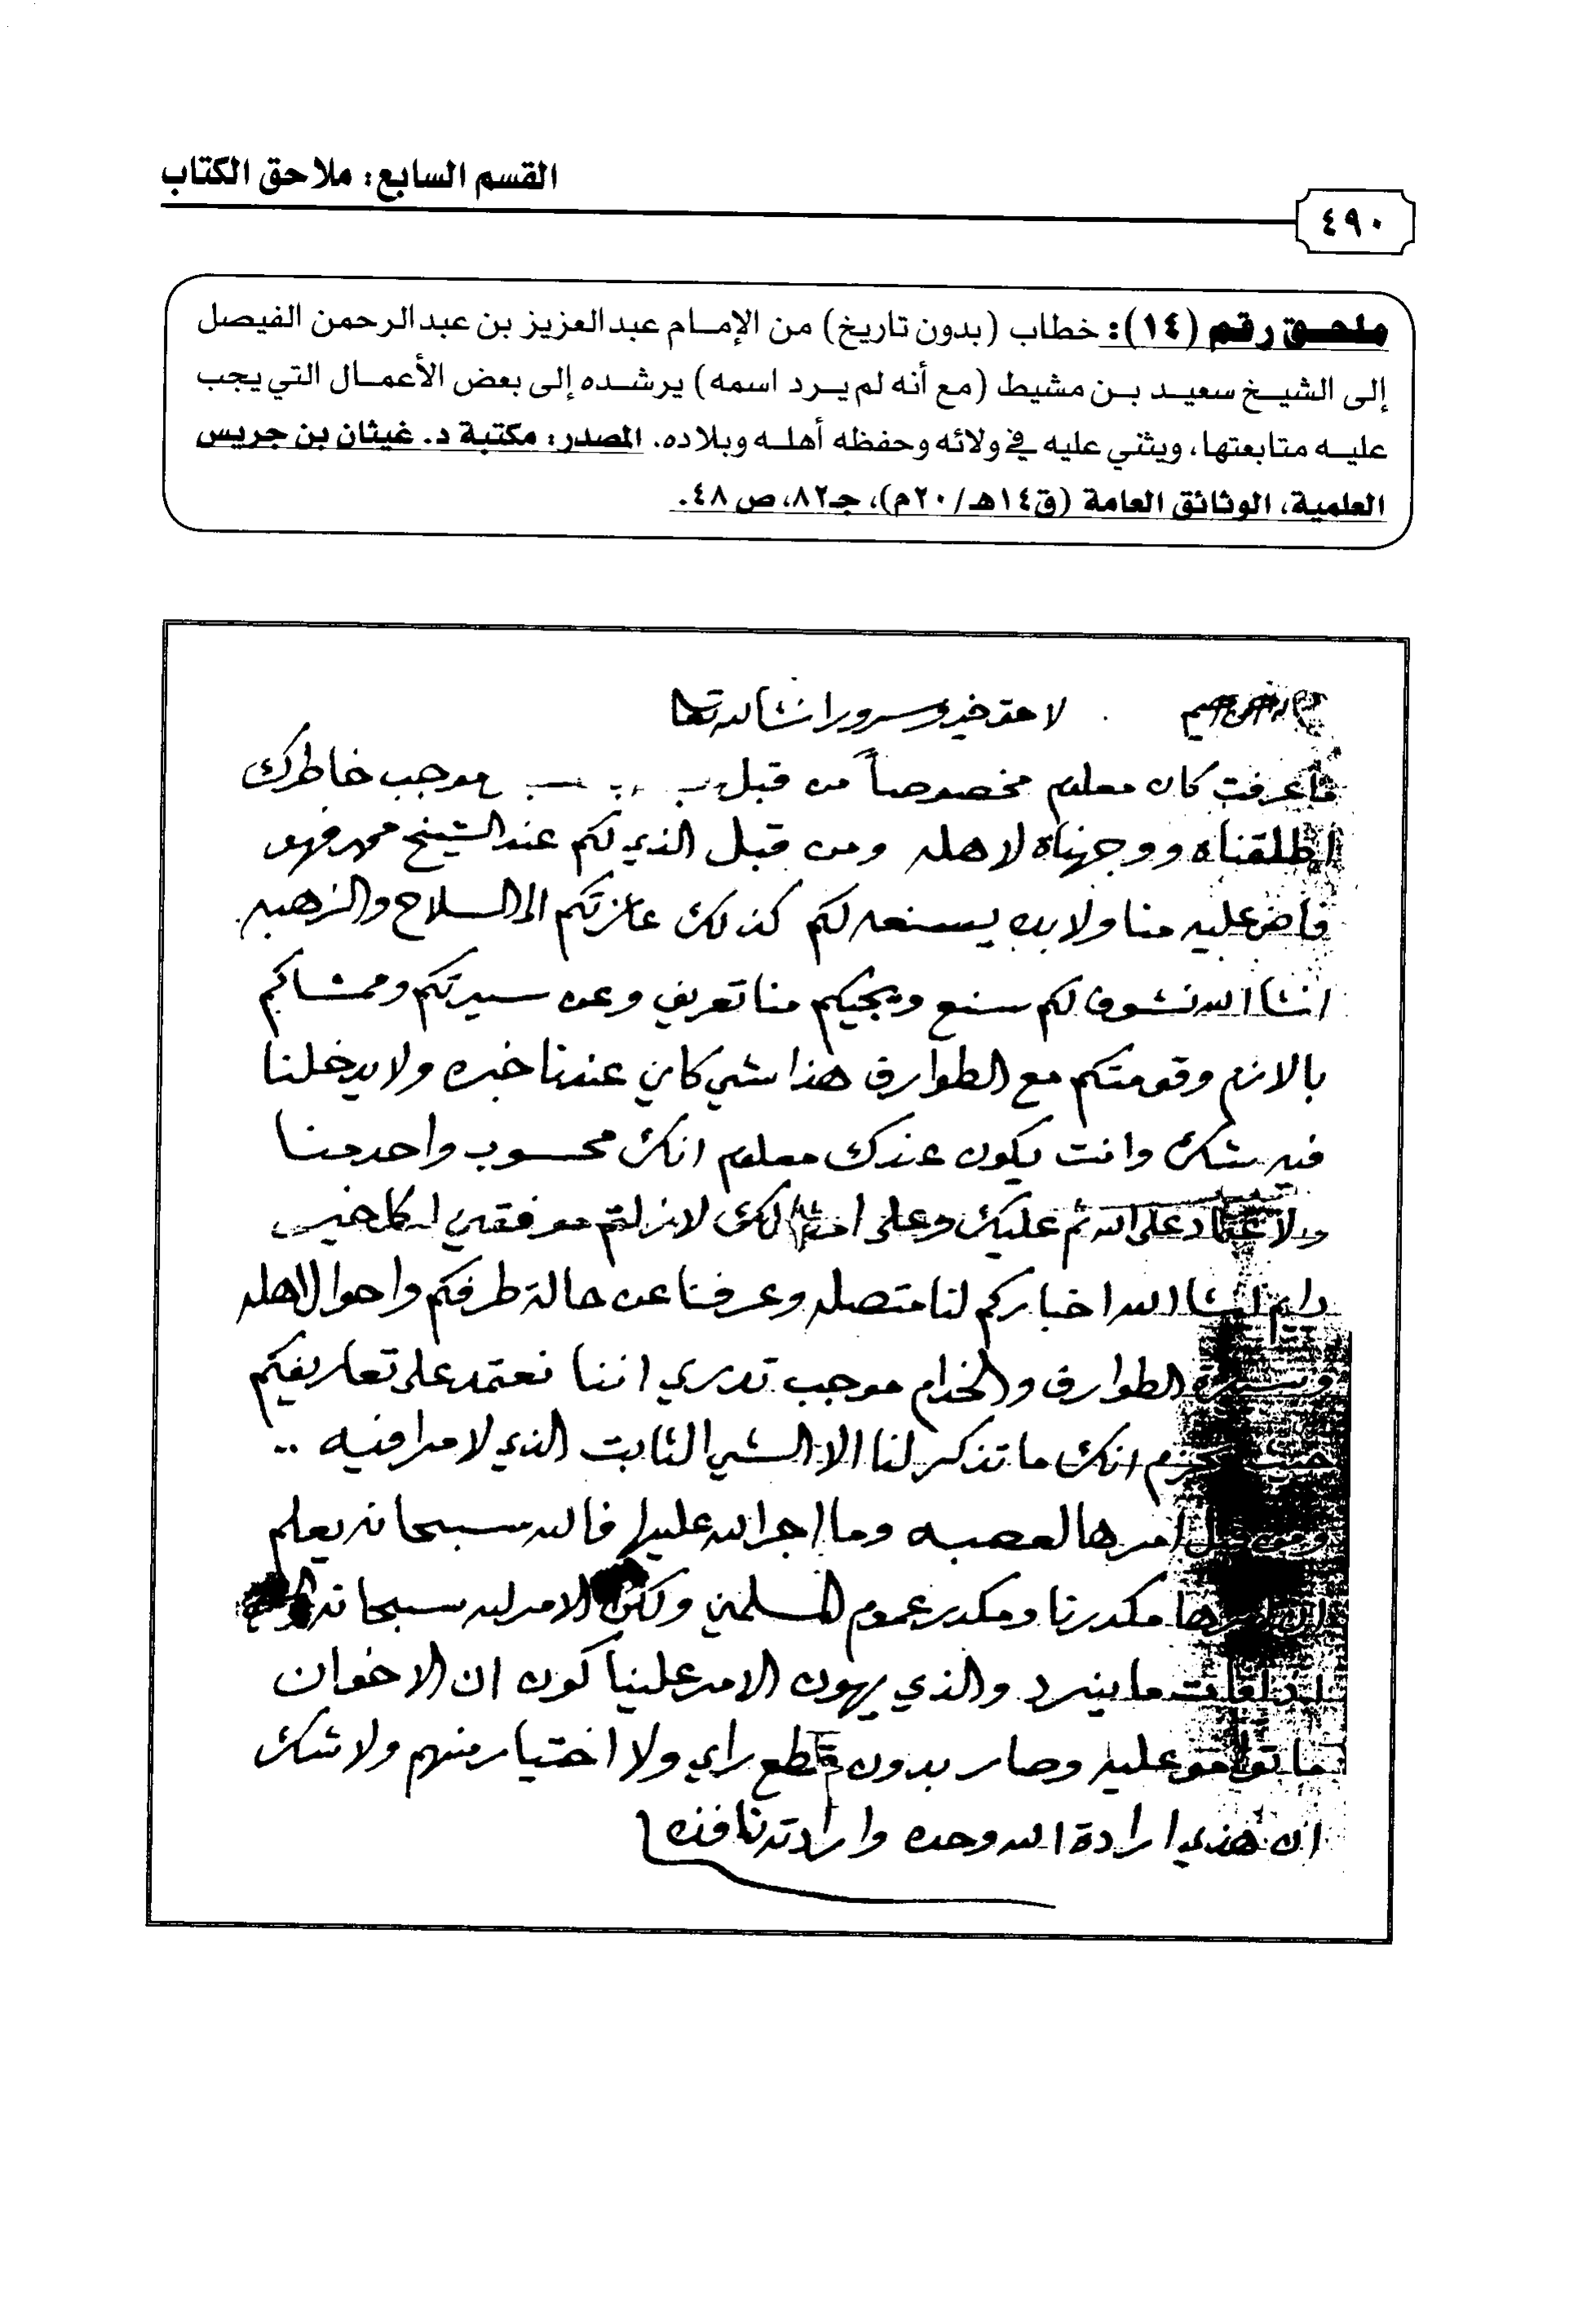 القسم السابع: ملاحق الكتاب
٤٩٠
ملحق رقم (١٤): خطاب (بدون تاريخ) من الإمام عبدالعزيز بن عبدالرحمن الفيصل
إلى الشيخ سعيد بن مشيط (مع أنه لم يرد اسمه) يرشده إلى بعض الأعمال التي يجب
عليه متابعتها، ويثني عليه في ولائه وحفظه أهله وبلاده. المصدر: مكتبة د. غيثان بن جريس
العلمية، الوثائق العامة (ق١٤هـ/٢٠م)، جـ٨٢، ص٤٨.
لاحقه خير وسرور انشاالله تعا
ماعرفت كان معلوم مخصوصاً من قبل موجب خاطرك
اطلقناه ووجهناه لاهله ومن قبل الذي لكم عند الشيخ محمد فهو
فاض عليه منا ولابده يسنعه لكم كذلك عازتكم الى السلاح والزهبه
انشاالله نشوف لكم سنع ويجيكم منا تعريف وعن سيرتكم وممشاكم
بالازم وقومتكم مع الطوارف هذا شي كاين عندنا خبره ولا يدخلنا
فيه شك وانت يكون عندك معلوم انك محسوب واحد منا
على الله ثم عليك وعلى امثالك لازلتم موفقين لكل خير
دايم انشاالله اخباركم لنا متصله وعرفنا عن حالة طرفكم واحوال اهله
الطوارف والخدام موجب تدري اننا نعتمد على تعاريفكم
انك ما تذكر لنا الا الشي الثابت الذي لا مرا فيه ..
امرها لعصبه وما اجرا الله عليها فالله سبحانه يعلم
مكدرنا ومكدر عموم المسلمين ولكن الامر لله سبحانه
ما ينرد والذي يهون الامر علينا كون ان الاخوان
ما توافقو عليه وصار بدون قطع راي ولا اختيار منهم ولا شك
ان هذي ارادة الله وحده وارادته نافذه